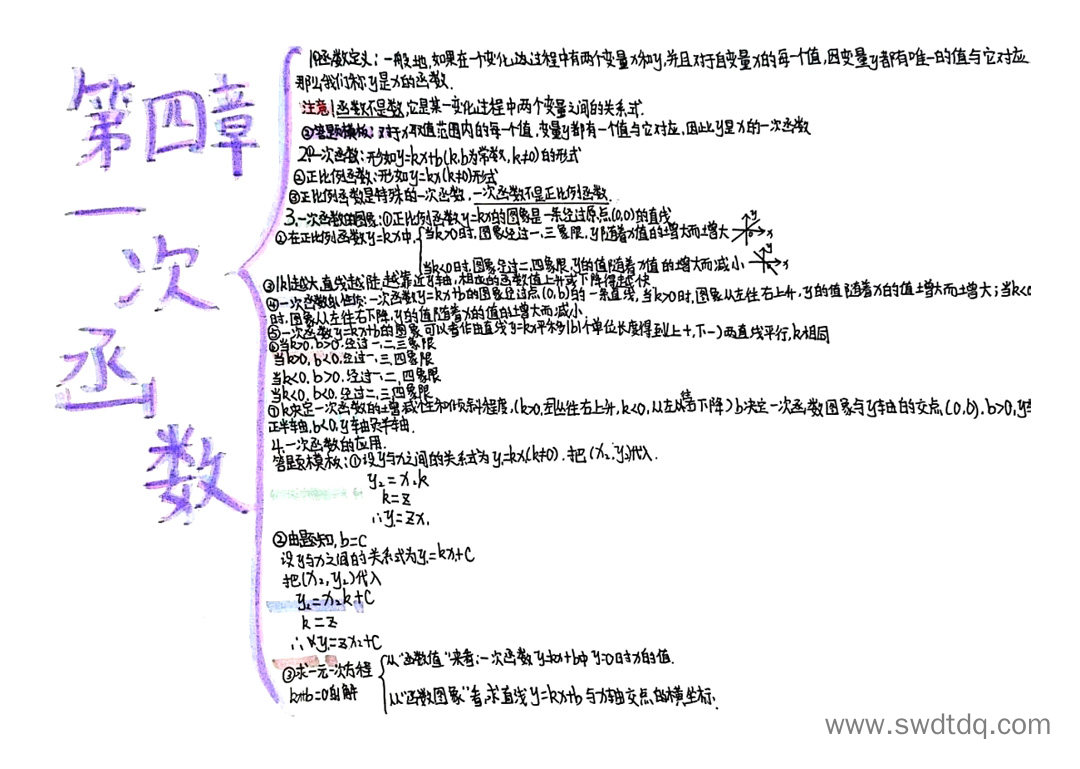 第四章
一次函数
1.①函数定义：一般地,如果在一个变化过程中有两个变量x和y,并且对于自变量x的每一个值,因变量y都有唯一的值与它对应
那么我们称y是x的函数.
注意!函数不是数,它是某一变化过程中两个变量之间的关系式.
②答题模板：对于x取值范围内的每一个值,变量y都有一个值与它对应,因此y是x的一次函数
2.①一次函数：形如y=kx+b(k,b为常数,k≠0)的形式
②正比例函数：形如y=kx(k≠0)形式
③正比例函数是特殊的一次函数,一次函数不是正比例函数.
3.一次函数的图象：①正比例函数y=kx的图象是一条经过原点(0,0)的直线
②在正比例函数y=kx中,
当k>0时,图象经过一,三象限,y随着x值的增大而增大
y
x
当k<0时,图象经过二,四象限,y的值随着x值的增大而减小
y
x
③|k|越大,直线越陡,越靠近y轴,相应的函数值上升或下降得越快
④一次函数的性质：一次函数y=kx+b的图象经过点(0,b)的一条直线,当k>0时,图象从左往右上升,y的值随着x的值增大而增大；当k<0
时,图象从左往右下降,y的值随着x的值的增大而减小
⑤一次函数y=kx+b的图象可以看作由直线y=kx平移|b|个单位长度得到(上+,下-)两直线平行,k相同
⑥当k>0,b>0.经过一,二,三象限
当k>0,b<0.经过一,三,四象限
当k<0,b>0.经过一,二,四象限
当k<0,b<0,经过二,三,四象限
⑦k决定一次函数的增减性和倾斜程度,(k>0,从左往右上升,k<0,从左往右下降)b决定一次函数图象与y轴的交点,(0,b).b>0,y
正半轴,b<0,y轴负半轴.
4.一次函数的应用.
答题模板：①设y与x之间的关系式为y=kx(k≠0).把(x₂,y₂)代入.
y₂=x₂k
k=z
∴y=zx.
②由题知,b=c
设y与x之间的关系式为y=kx+c
把(x₂,y₂)代入
y₂=x₂k+c
k=z
∴y=zx₂+c
③求一元一次方程
kx+b=0的解
从“函数值”来看:一次函数y=kx+b中y=0时x的值.
从“函数图象”看,求直线y=kx+b与x轴交点的横坐标.
www.swdtdq.com